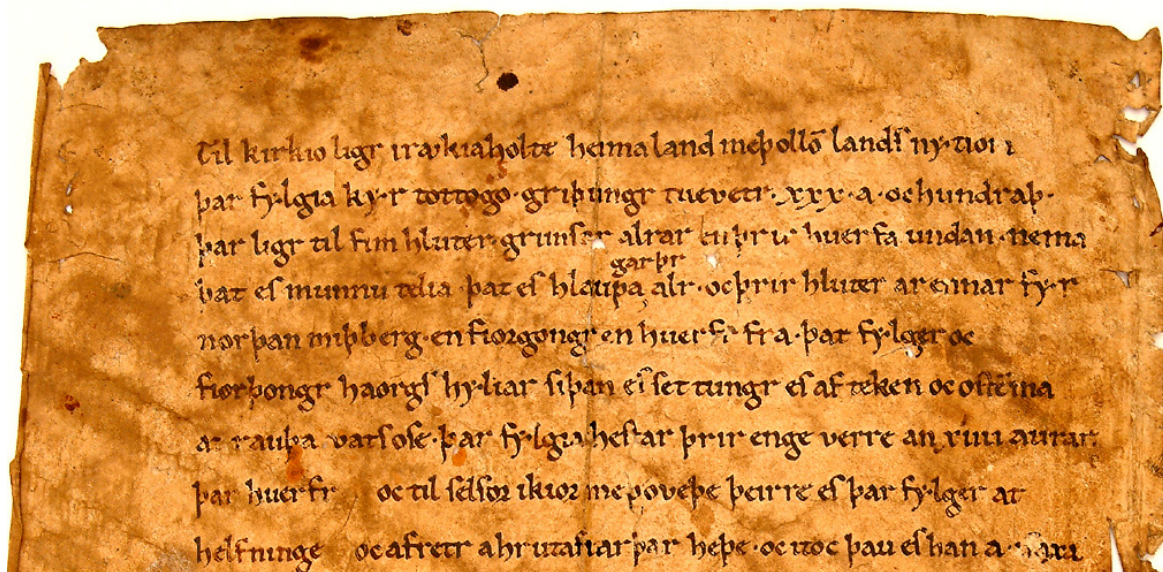 Til kirkio ligr i raykiaholte heimaland meþ ollō landſ ny·tiom
þar fy·lgia ky·r tottogo· griþungr tuevetr· xxx· a· oc hundraþ·
þar ligr til fim hluter· grimſar alrar en þrir huerfa undan· nema
þat eſ munnu telia þat eſ hlaupa garþr alr· oc þrir hluter arennar fy·r
norþan miþberg· en fiorþongr en huerfr fra· þar fy·lger oc
fiorþongr haorgſ hy·liar siþan eſ settungr eſ af teken oc oſteina
at rauþa vatſ oſe· þar fy·lgia heſtar þrir enge verre an xiiii aurar·
þar huerfr oc til selfor i kior meþ oveþe þeirre eſ þar fy·lger at
helfninge oc afretr a hrutafiarþar heþe· oc itoc þau eſ han a·